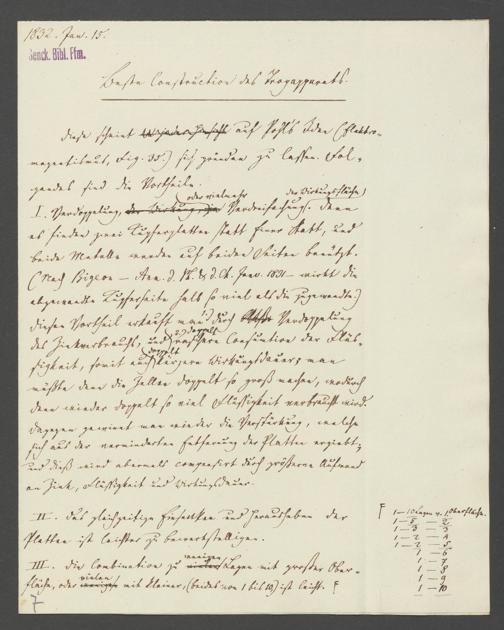 1832. Jan. 15.
Senck. Bibl. Ffm.
Beste Construction des Trogapparats.
Diese scheint auf Pohl's Idee (Elektro-
magnetismus, Fig. 35.) sich gründen zu lassen. Fol-
gendes sind die Vortheile.
(oder vielmehr der Wirkungsfläche)
I. Verdoppelung, der Wirkung, Vereinfachung. Denn
es finden zwei Kupferplatten statt Einer statt, und
beide Metalle werden auf beiden Seiten benützt.
(Nach Bigeon – Ann. d. Ph. & d. Ch. Jan. 1831 – wirkt die
abgewandte Kupferseite halb so viel als die zugewandte.)
Diesen Vortheil erkauft man 1.) durch Verdoppelung
2.) doppelt
des Zinkverbrauchs, und grössere Consumtion der Flüs-
doppelt
sigkeit, somit auch kürzere Wirkungsdauer; man
müßte denn die Zellen doppelt so groß machen, wodurch
dann wieder doppelt so viel Flüssigkeit verbraucht wird.
Dagegen gewinnt man wieder die Verstärkung, welche
sich aus der verminderten Entfernung der Platten ergiebt;
und dieß wird abermals compensirt durch größeren Aufwand
an Zink, Flüssigkeit und Wirkungsdauer.
II. Das gleichzeitige Einsenken und Herausheben der
Platten ist leichter zu bewerkstelligen.
wenigen
III. Die Combination zu Lagen mit großer Ober-
vielen
fläche, oder mit kleiner, (beides von 1 bis 10) ist leicht. F
F 1 – 10 Lagen v. 1 Oberfläche.
1 – 5 – 2
1 – 3 – 3
1 – 2 – 4
1 – 2 – 5
1 – 6
1 – 7
1 – 8
1 – 9
1 – 10
7